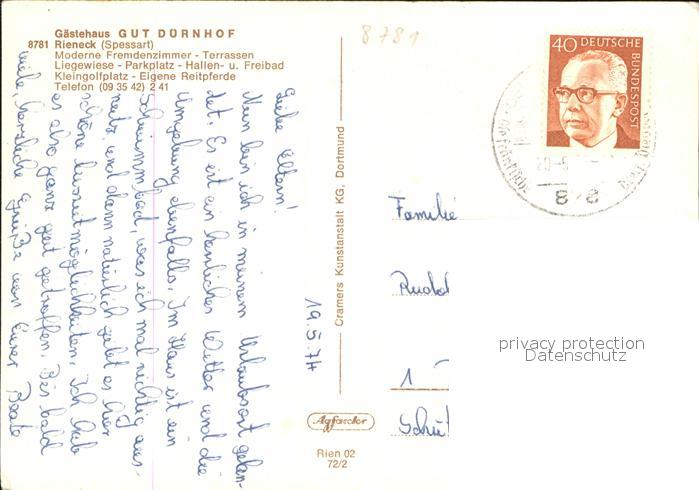 Gästehaus GUT DÜRNHOF
8781 Rieneck (Spessart)
Moderne Fremdenzimmer - Terrassen
Liegewiese - Parkplatz - Hallen- u. Freibad
Kleingolfplatz - Eigene Reitpferde
Telefon (0 93 5 42) 2 41
19.5.74
Liebe Eltern!
Nun bin ich in meinem Urlaubsort gelan-
det. Es ist ein herrliches Wetter und die
Umgebung ebenfalls. Im Haus ist ein
Schwimmbad, was ich mal richtig aus-
nutz und dann natürlich gibt es hier
schöne Reitmöglichkeiten. Ich hab
es also ganz gut getroffen. Bis bald
viele, herzliche Grüße von Eurer Beate
Cramers Kunstanstalt KG, Dortmund
Agfacolor
Rien 02
72/2
8781
40 DEUTSCHE
BUNDESPOST
Familie
Rudol
1
Schü
privacy protection
Datenschutz